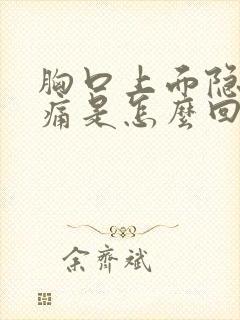 胸口上面隐
痛是怎麼回
余齊斌